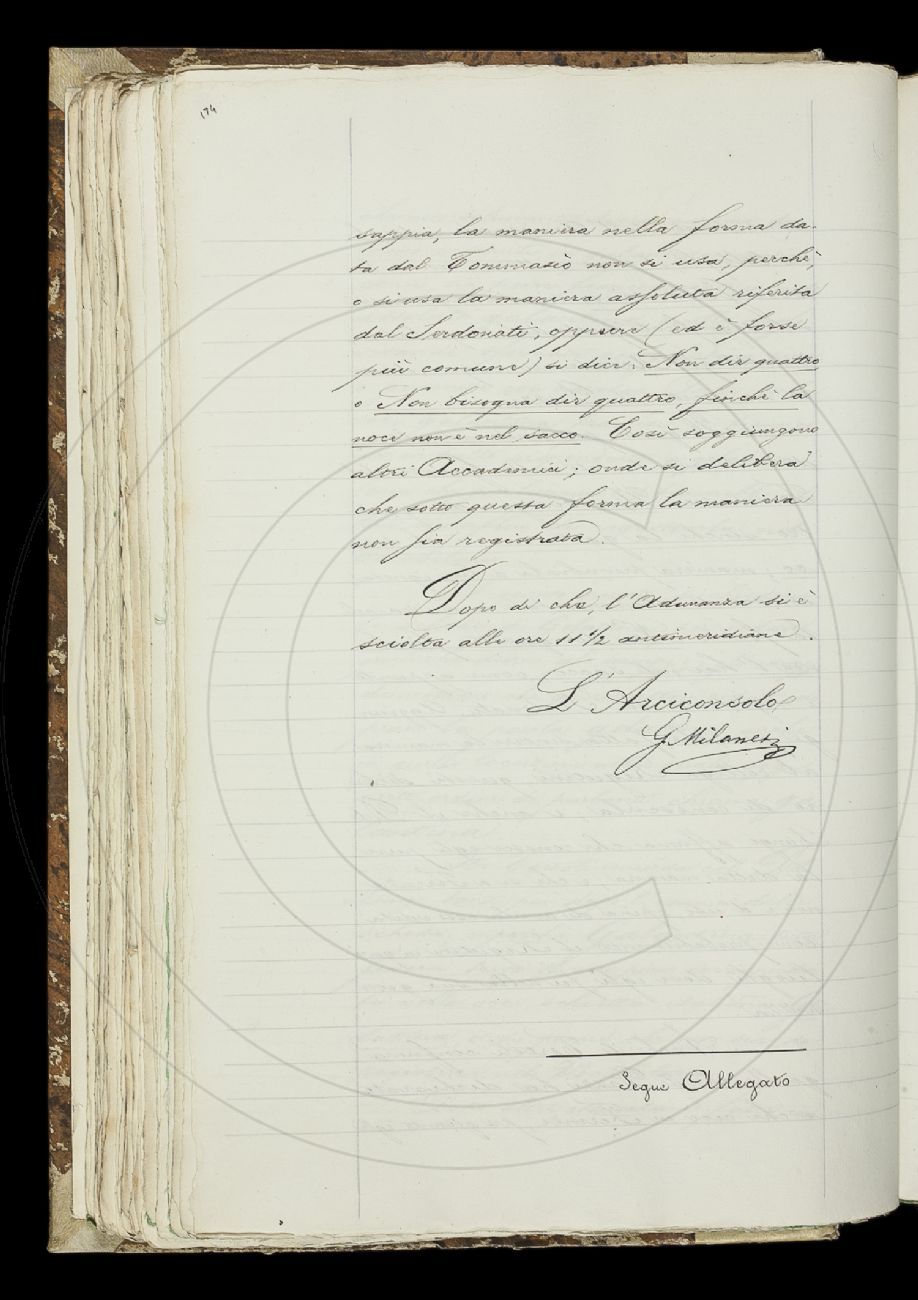 174
sappia, la maniera nella forma da-
ta dal Tommasèo non si usa, perchè,
o si usa la maniera assoluta riferita
dal Serdonati, oppure (ed è forse
più comune) si dice: Non dir quattro
o Non bisogna dir quattro, finchè la
noce non è nel sacco. Così soggiungono
altri Accademici; onde si delibera
che sotto questa forma la maniera
non sia registrata.
Dopo di che, l'Adunanza si è
sciolta alle ore 11 1/2 antimeridiane.
L'Arciconsolo
G. Milanesi
Segue Allegato